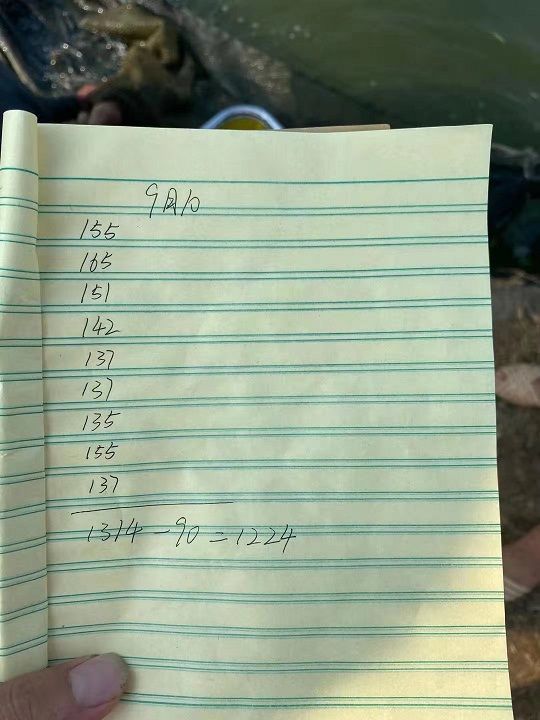 9月10
155
165
151
142
137
137
135
155
137
1314-90=1224